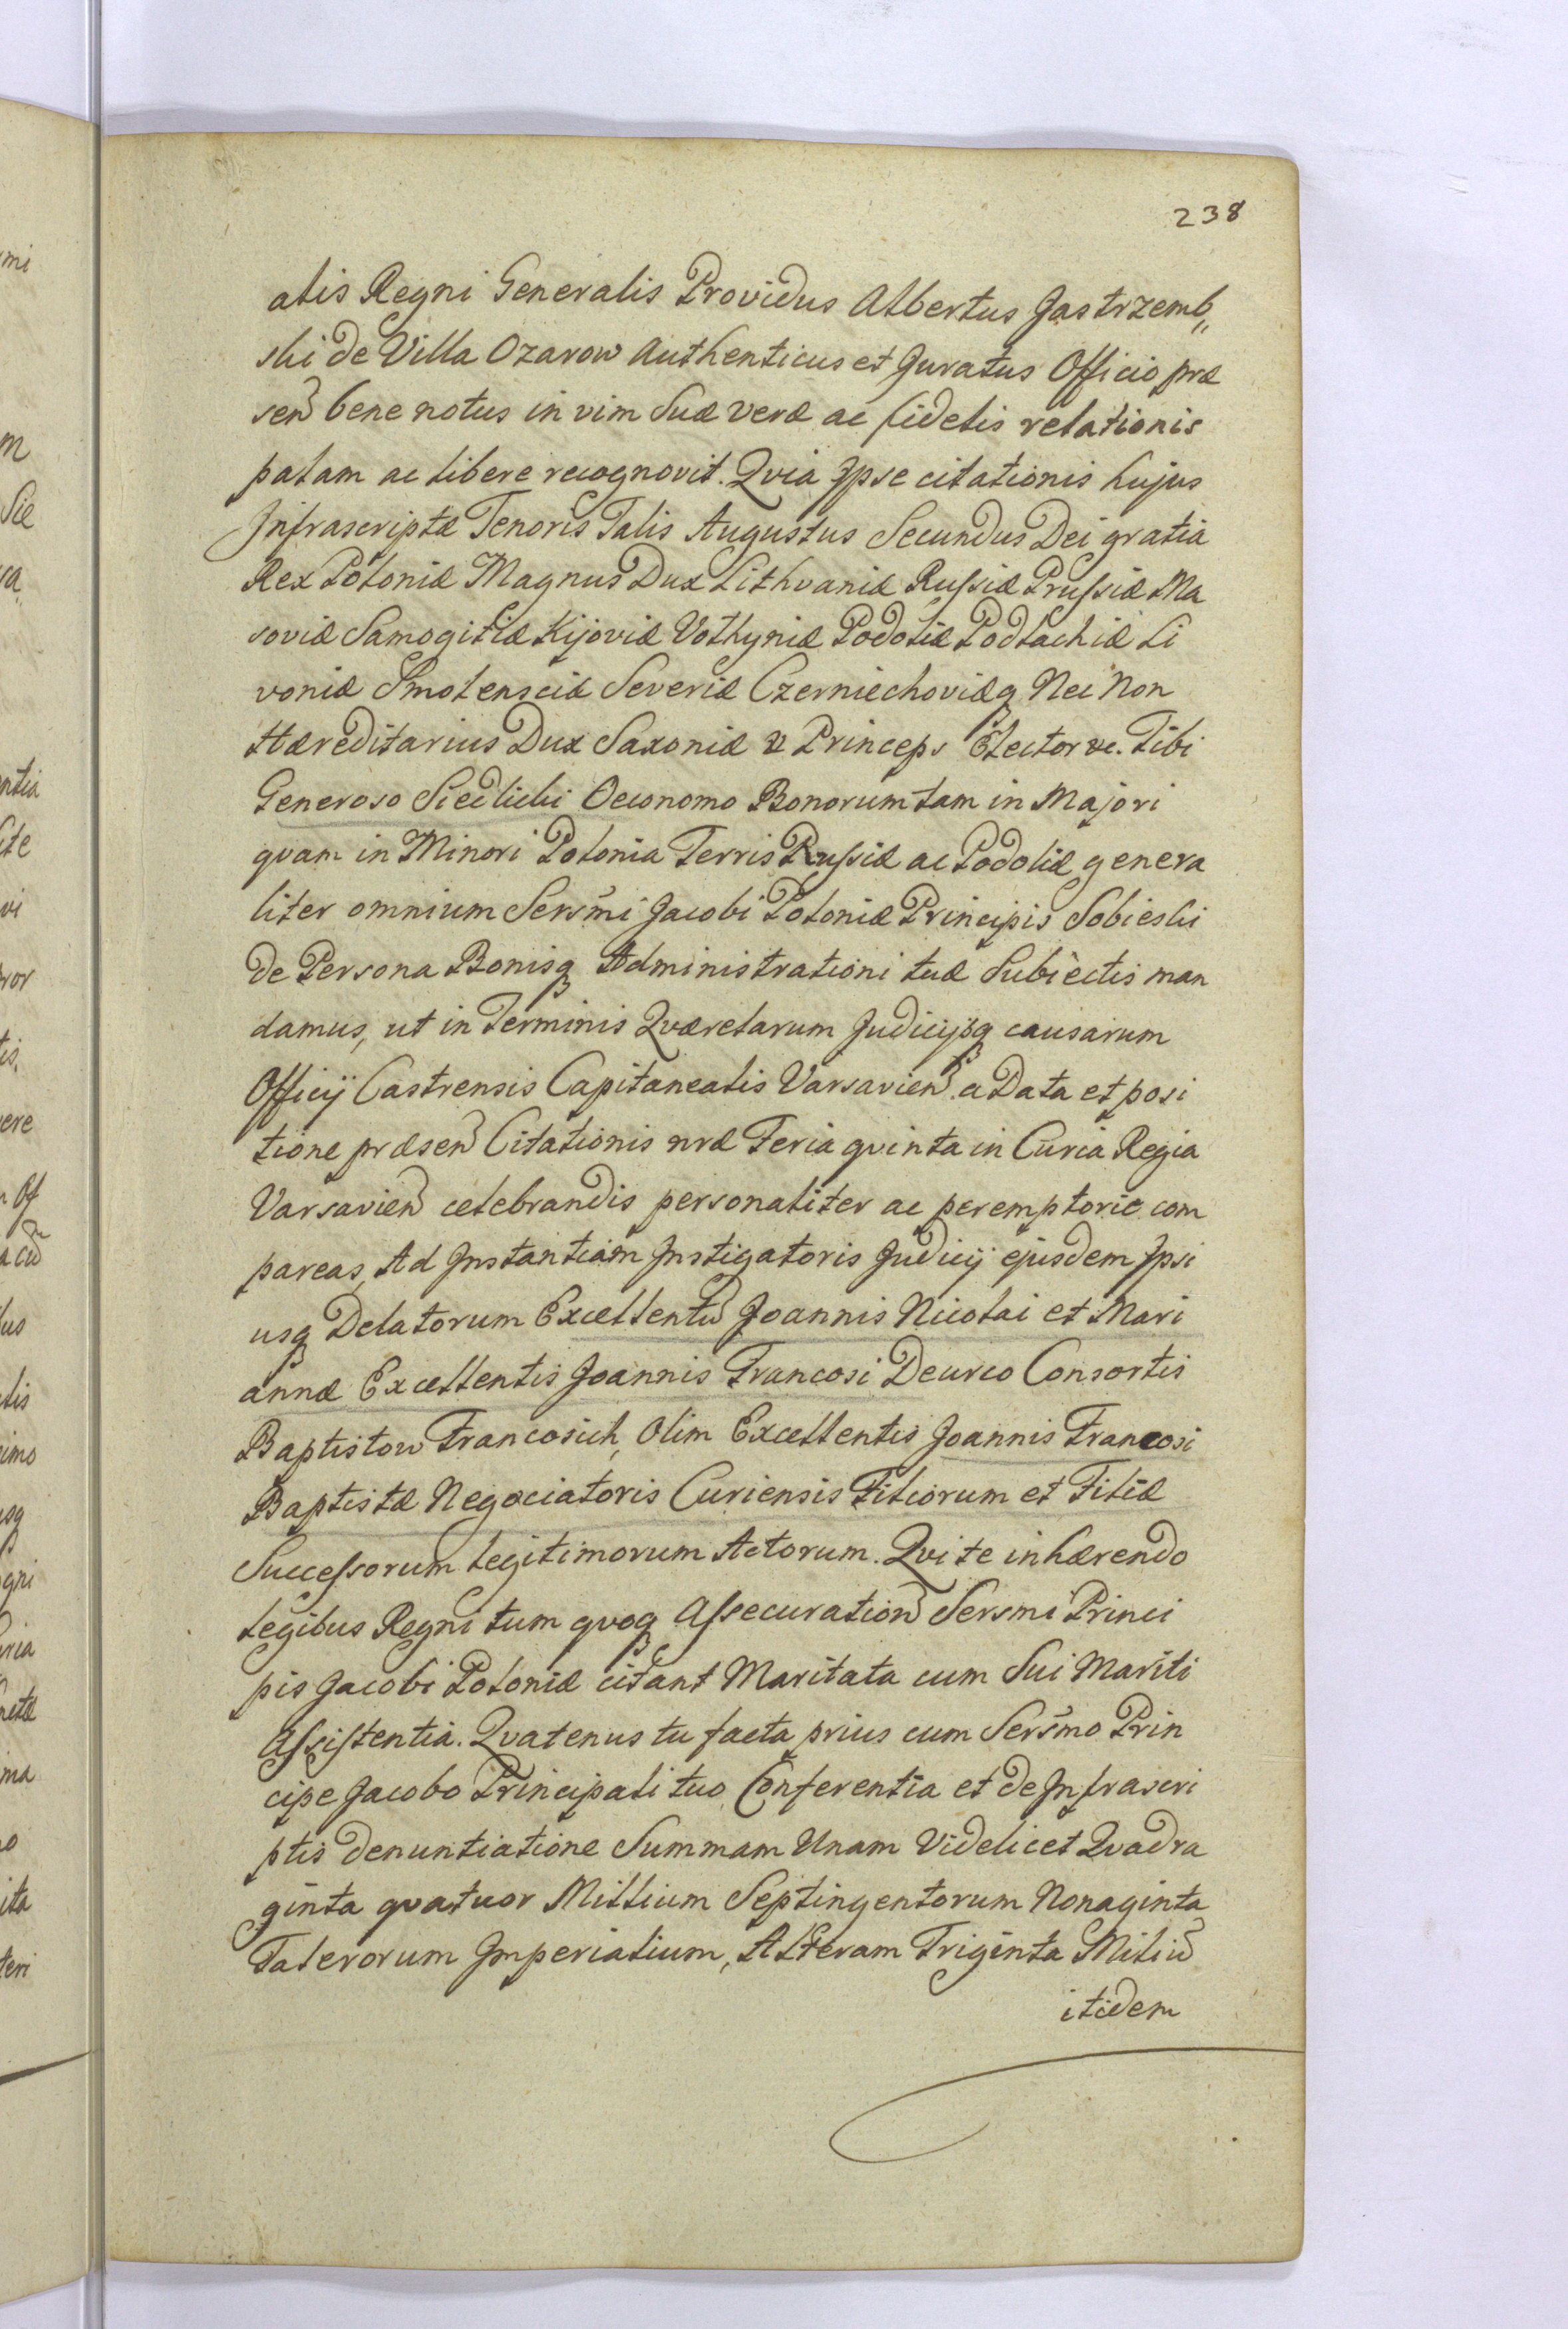 238
alis Regni Generalis Providus Albertus Jastrzemb„
ski de Villa Ozarow Authenticus et Juratus Officio præ
sen̄ bene notus in vim Suæ veræ ac fidelis relationis
palam ac libere recognovit. Qvia Ipse citationis hujus
Infrascriptæ Tenoris Talis Augustus Secundus Dei gratia
Rex Poloniæ Magnus Dux Lithvaniæ Russiæ Prussiæ Ma
soviæ Samogitiæ Kijoviæ Volhyniæ Podoliæ Podlachiæ Li
voniæ Smolensciæ Severiæ Czerniechoviæq Nec Non
Hæreditarius Dux Saxoniæ & Princeps Elector &c. Tibi
Generoso Siedlicki Oeconomo Bonorum tam in Majori
qvam in Minori Polonia Terris Russiæ ac Podoliæ genera
liter omnium Sersm̄i Jacobi Poloniæ Principis Sobieski
de Persona Bonisq Administrationi tuæ Subiectis man
damus, ut in Terminis Qværelarum Judicijsq causarum
Officij Castrensis Capitanealis Varsavien̄ a Data et posi
tione præsen̄ Citationis nræ Feria qvinta in Curia Regia
Varsavien̄ celebrandis personaliter ac peremptorie com
pareas, Ad Instantiam Instigatoris Judicij ejusdem Ipsi
usq Delatorum Excellentiū Joannis Nicolai et Mari
annæ Excellentis Joannis Francosi Deurco Consortis
Baptistow Francosich, Olim Excellentis Joannis Francosi
Baptistæ Negociatoris Curiensis Filiorum et Filiæ
Successorum legitimorum Actorum. Qvi te inhærendo
legibus Regni tum qvoq Assecuration̄ Sersmi Princi
pis Jacobi Poloniæ citant Maritata cum Sui Mariti
Assistentia. Qvatenus tu facta prius cum Sersm̄o Prin
cipe Jacobo Principali tuo Conferentia et de Infrascri
ptis denuntiatione Summam Unam Videlicet Qvadra
ginta qvatuor Millium Septingentorum Nonaginta
Talerorum Imperialium, Alteram Triginta Miliū
itidem